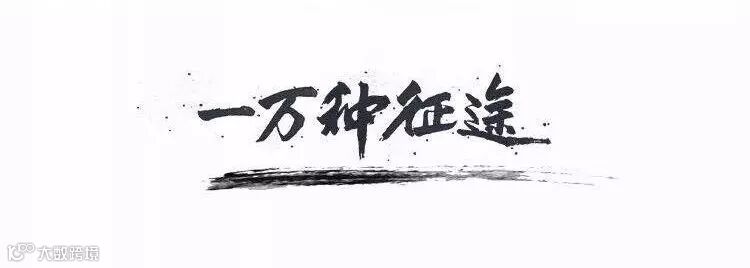 一万种征途
大数跨境